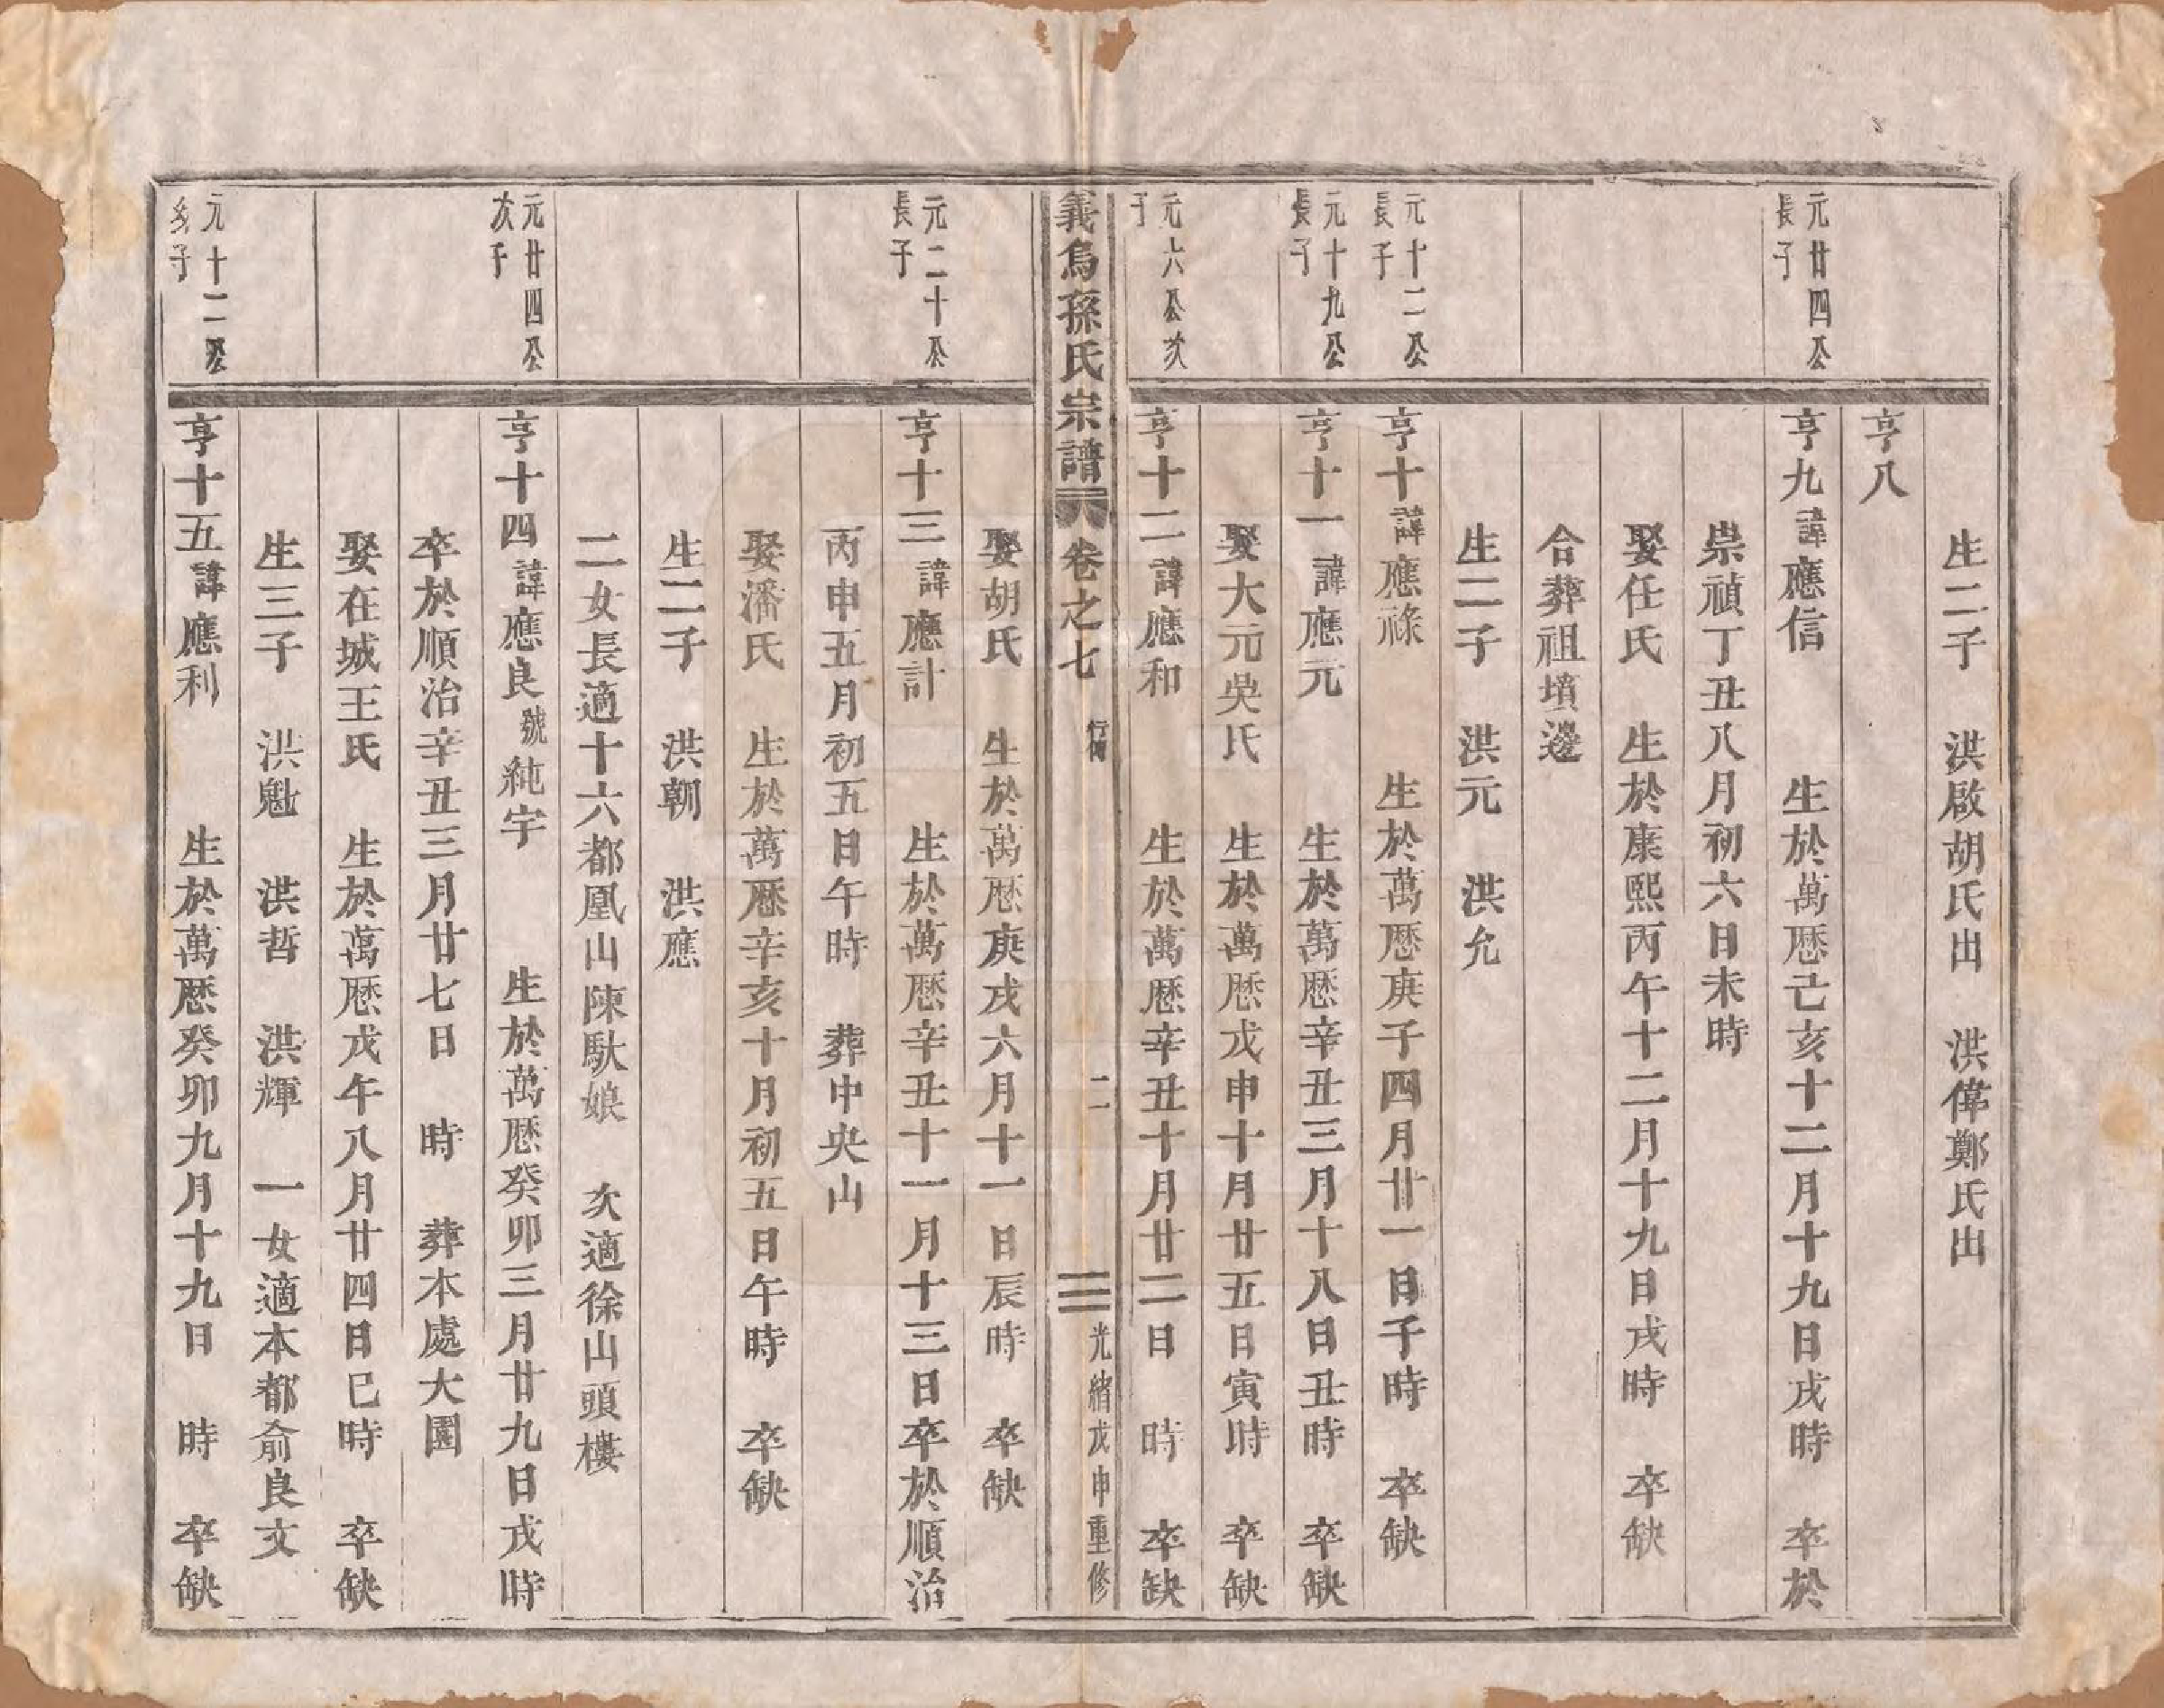 生二子　洪啟胡氏出　洪偉鄭氏出
亨八
元廿四公長子
亨九諱應信　生於萬厯己亥十二月十九日戌時　卒於
崇禎丁丑八月初六日未時
娶任氏　生於康熙丙午十二月十九日戌時　卒缺
合葬祖墳邊
生二子　洪元　洪允
元十二公長子
亨十諱應祿　生於萬厯庚子四月廿一日子時　卒缺
元十九公長子
亨十一諱應元　生於萬厯辛丑三月十八日丑時　卒缺
娶大元吳氏　生於萬厯戊申十月廿五日寅時　卒缺
元六公次子
亨十二諱應和　生於萬厯辛丑十月廿二日　時　卒缺
義烏孫氏宗譜　卷之七　行傳　二　光緒戊申重修
娶胡氏　生於萬厯庚戌六月十一日辰時　卒缺
元二十公長子
亨十三諱應計　生於萬厯辛丑十一月十三日卒於順治
丙申五月初五日午時　葬中央山
娶潘氏　生於萬厯辛亥十月初五日午時　卒缺
生二子　洪朝　洪應
二女長適十六都凰山陳馱娘　次適徐山頭樓
元廿四公次子
亨十四諱應良號純宇　生於萬厯癸卯三月廿九日戌時
卒於順治辛丑三月廿七日　時　葬本處大園
娶在城王氏　生於萬厯戊午八月廿四日巳時　卒缺
生三子　洪魁　洪哲　洪輝　一女適本都俞良文
元十二公次子
亨十五諱應利　生於萬厯癸卯九月十九日　時　卒缺